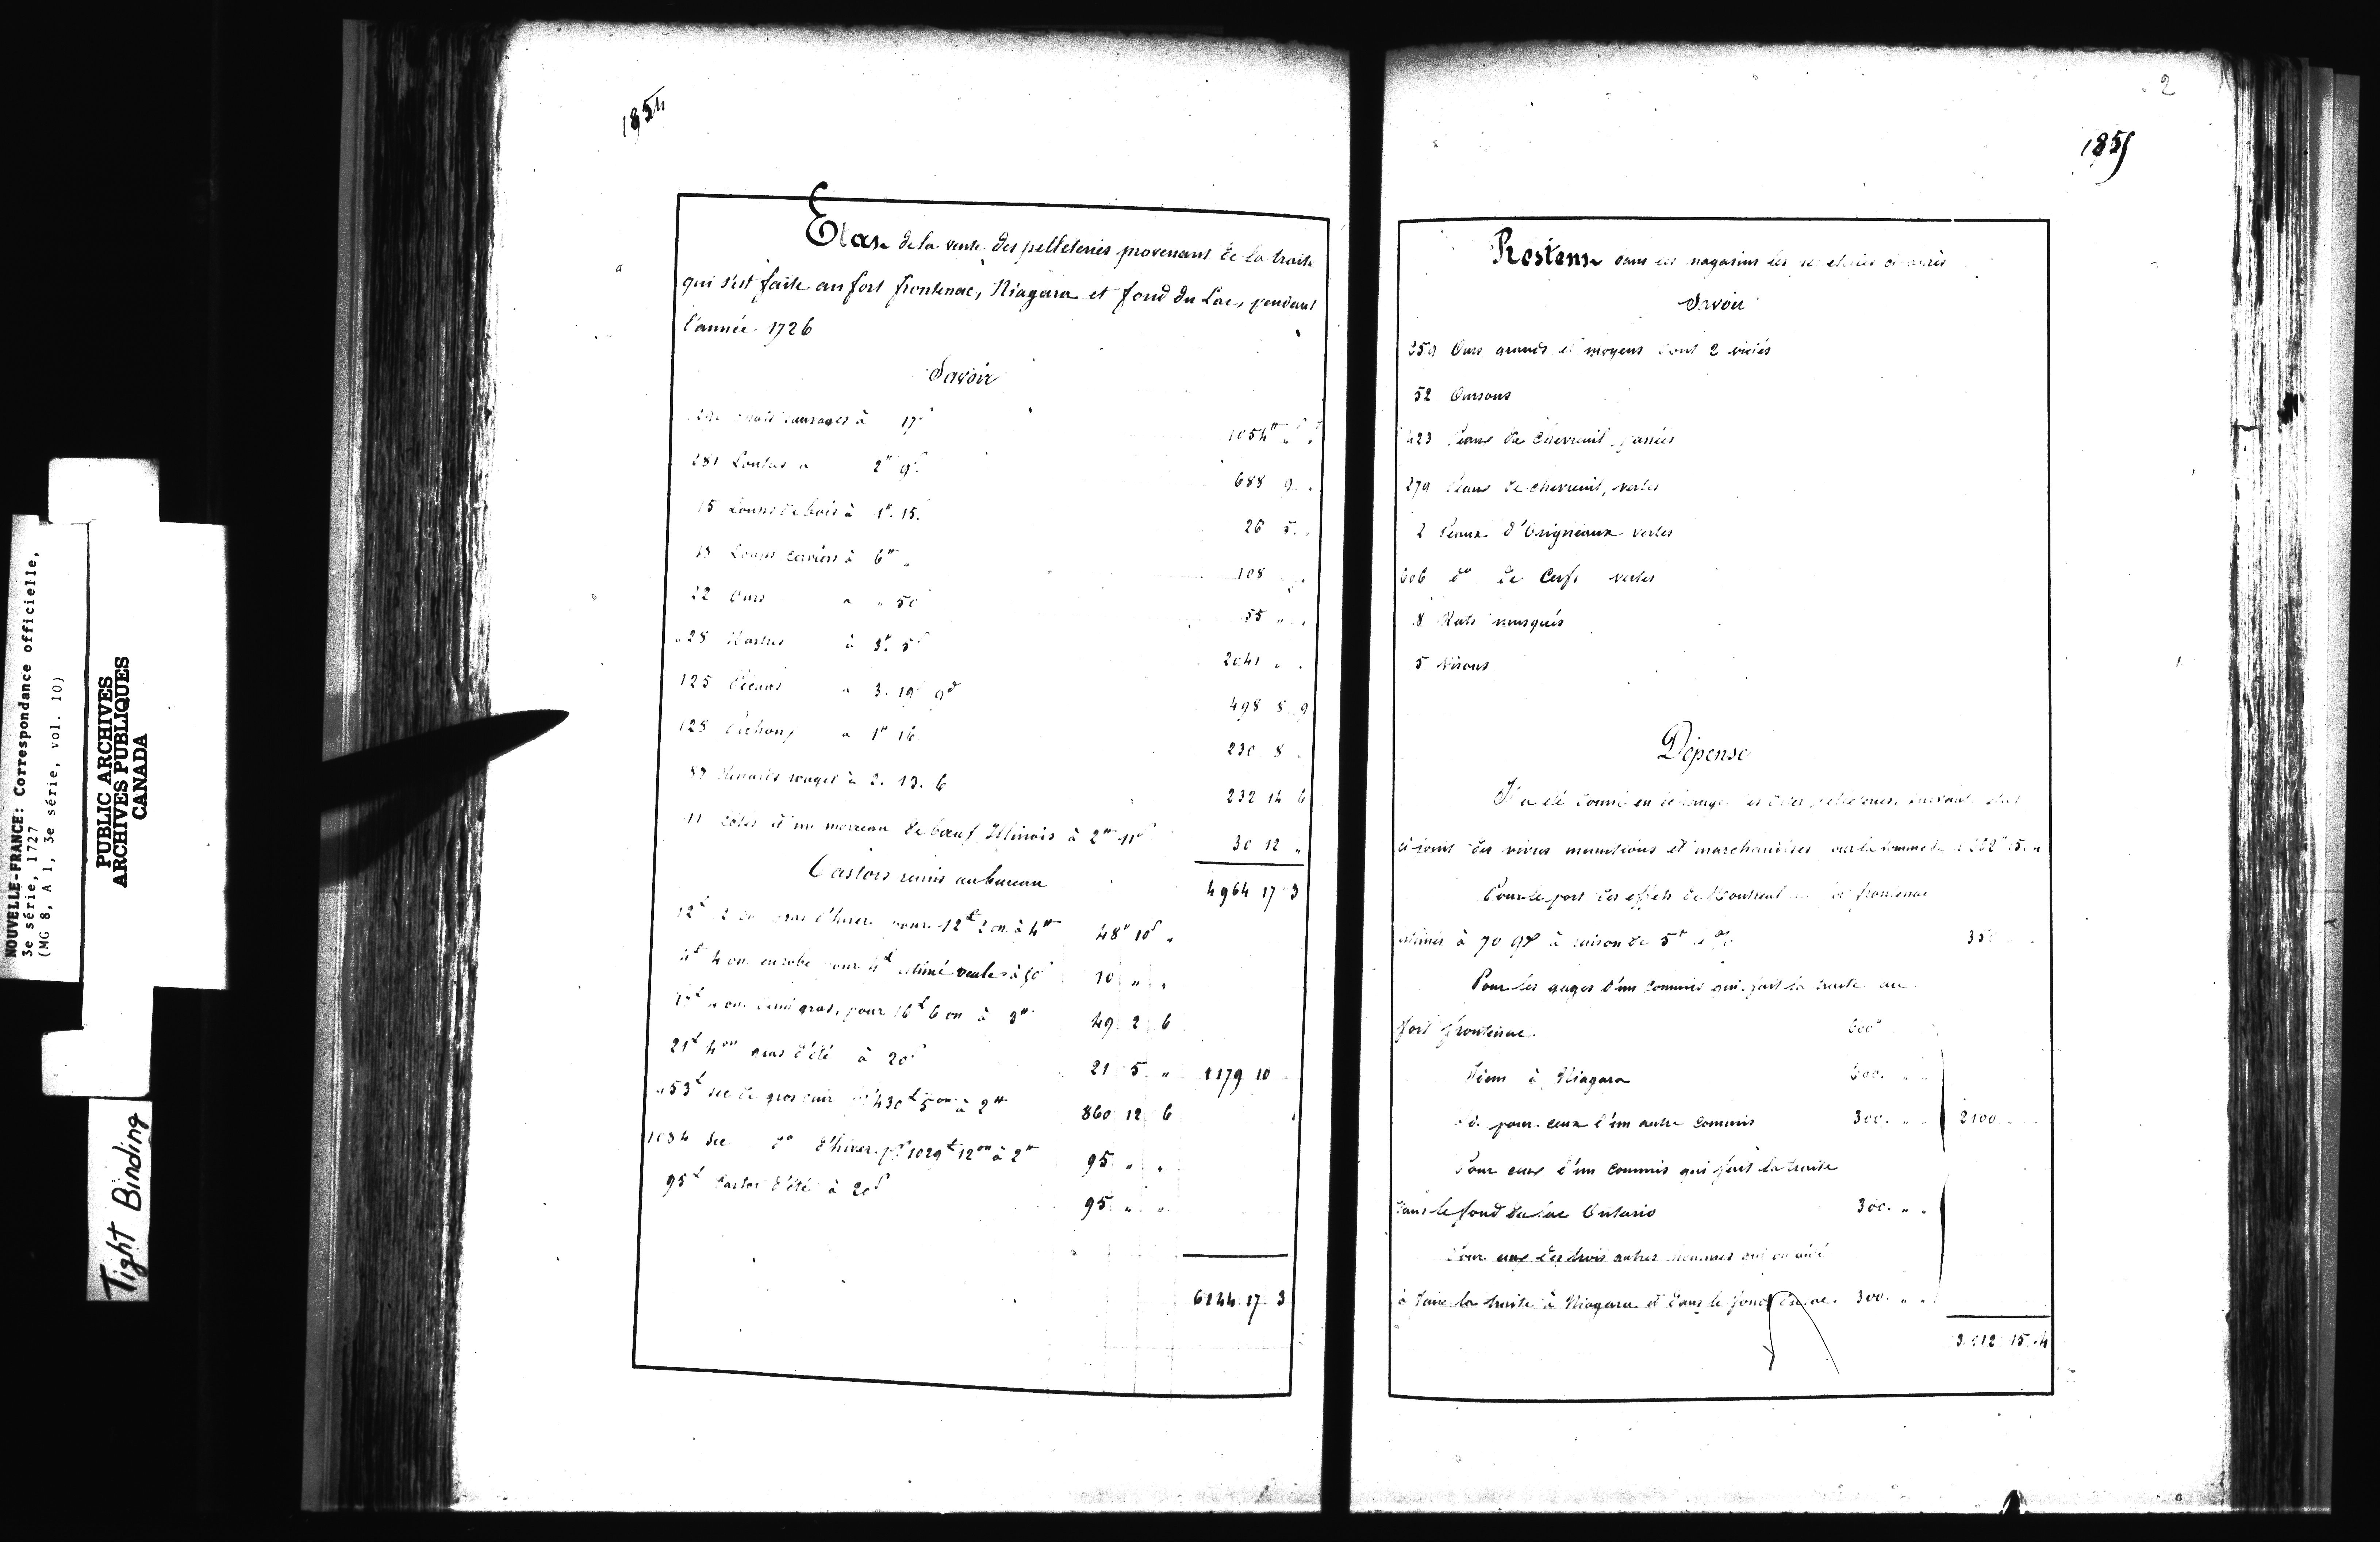 NOUVELLE-FRANCE: Correspondance officielle,
3e série, 1727
(MG 8, A 1, 3e série, vol. 10)
PUBLIC ARCHIVES
ARCHIVES PUBLIQUES
CANADA
Tight Binding
1854
Etat de la vente des pelleteries provenant de la traite
qui s'est faite au fort frontenac, Niagara et fond du Lac, pendant
l'année 1726
Savoir
à 17s 1054
281 Loutres a 2tt 9s 688 9
15 Loups de bois à 1tt 15 26 5
18 Loups cerviers à 6tt 108
22 Ours a 50 55
628 Martres à 3tt 5s 2041
125 Pécans a 3. 19 9d 498 8 9
128 Pichoux a 1tt 16 230 8
87 Renards rouges à 2. 13. 6 232 14 6
Côtes et un morceau de boeuf Illinois à 2tt 11s 30 12
4964 17 3
Castors remis au bureau
12l 2 on gras d'hiver pour 12l 2 on à 4tt 48tt 10s
4l 4 on en robe pour 4l estimé veule à 50s 10
demi gras, pour 16l 6 on à 3tt 49 2 6
21l 4on gras d'été à 20s 21 5
1179 10
453l sec de gros cuir pr 430l 5on à 2tt 860 12 6
1034 sec do d'hiver pr 1029l 12on à 2tt 95
95l Castor d'été à 20s 95
6144 17 3
2
1855
Restent dans les magasins les pelleteries ci après
Savoir
250 Ours grands et moyens dont 2 viciés
52 Oursons
423 Peaux de Chevreuil passées
279 Peaux de chevreuil, vertes
2 Peaux d'Orignaux vertes
306 do de Cerfs vertes
8 Rats musqués
5 Visons
Dépense
Il a été donné en échange des dites pelleteries, suivant
ci joint des vivres munitions et marchandises pour la somme de
Pour le port des effets de Montreal frontenac
estimés à 70 à raison de 5tt 350
Pour les gages d'un Commis qui fait la traite au
fort frontenac 600
Idem à Niagara 600
Id. pour ceux d'un autre Commis 300
2100
Pour ceux d'un Commis qui fait la traite
dans le fond du lac Ontario 300
Pour ceux des trois autres hommes qui ont aidé
à faire la traite à Niagara et dans le fond du lac 300
15 4